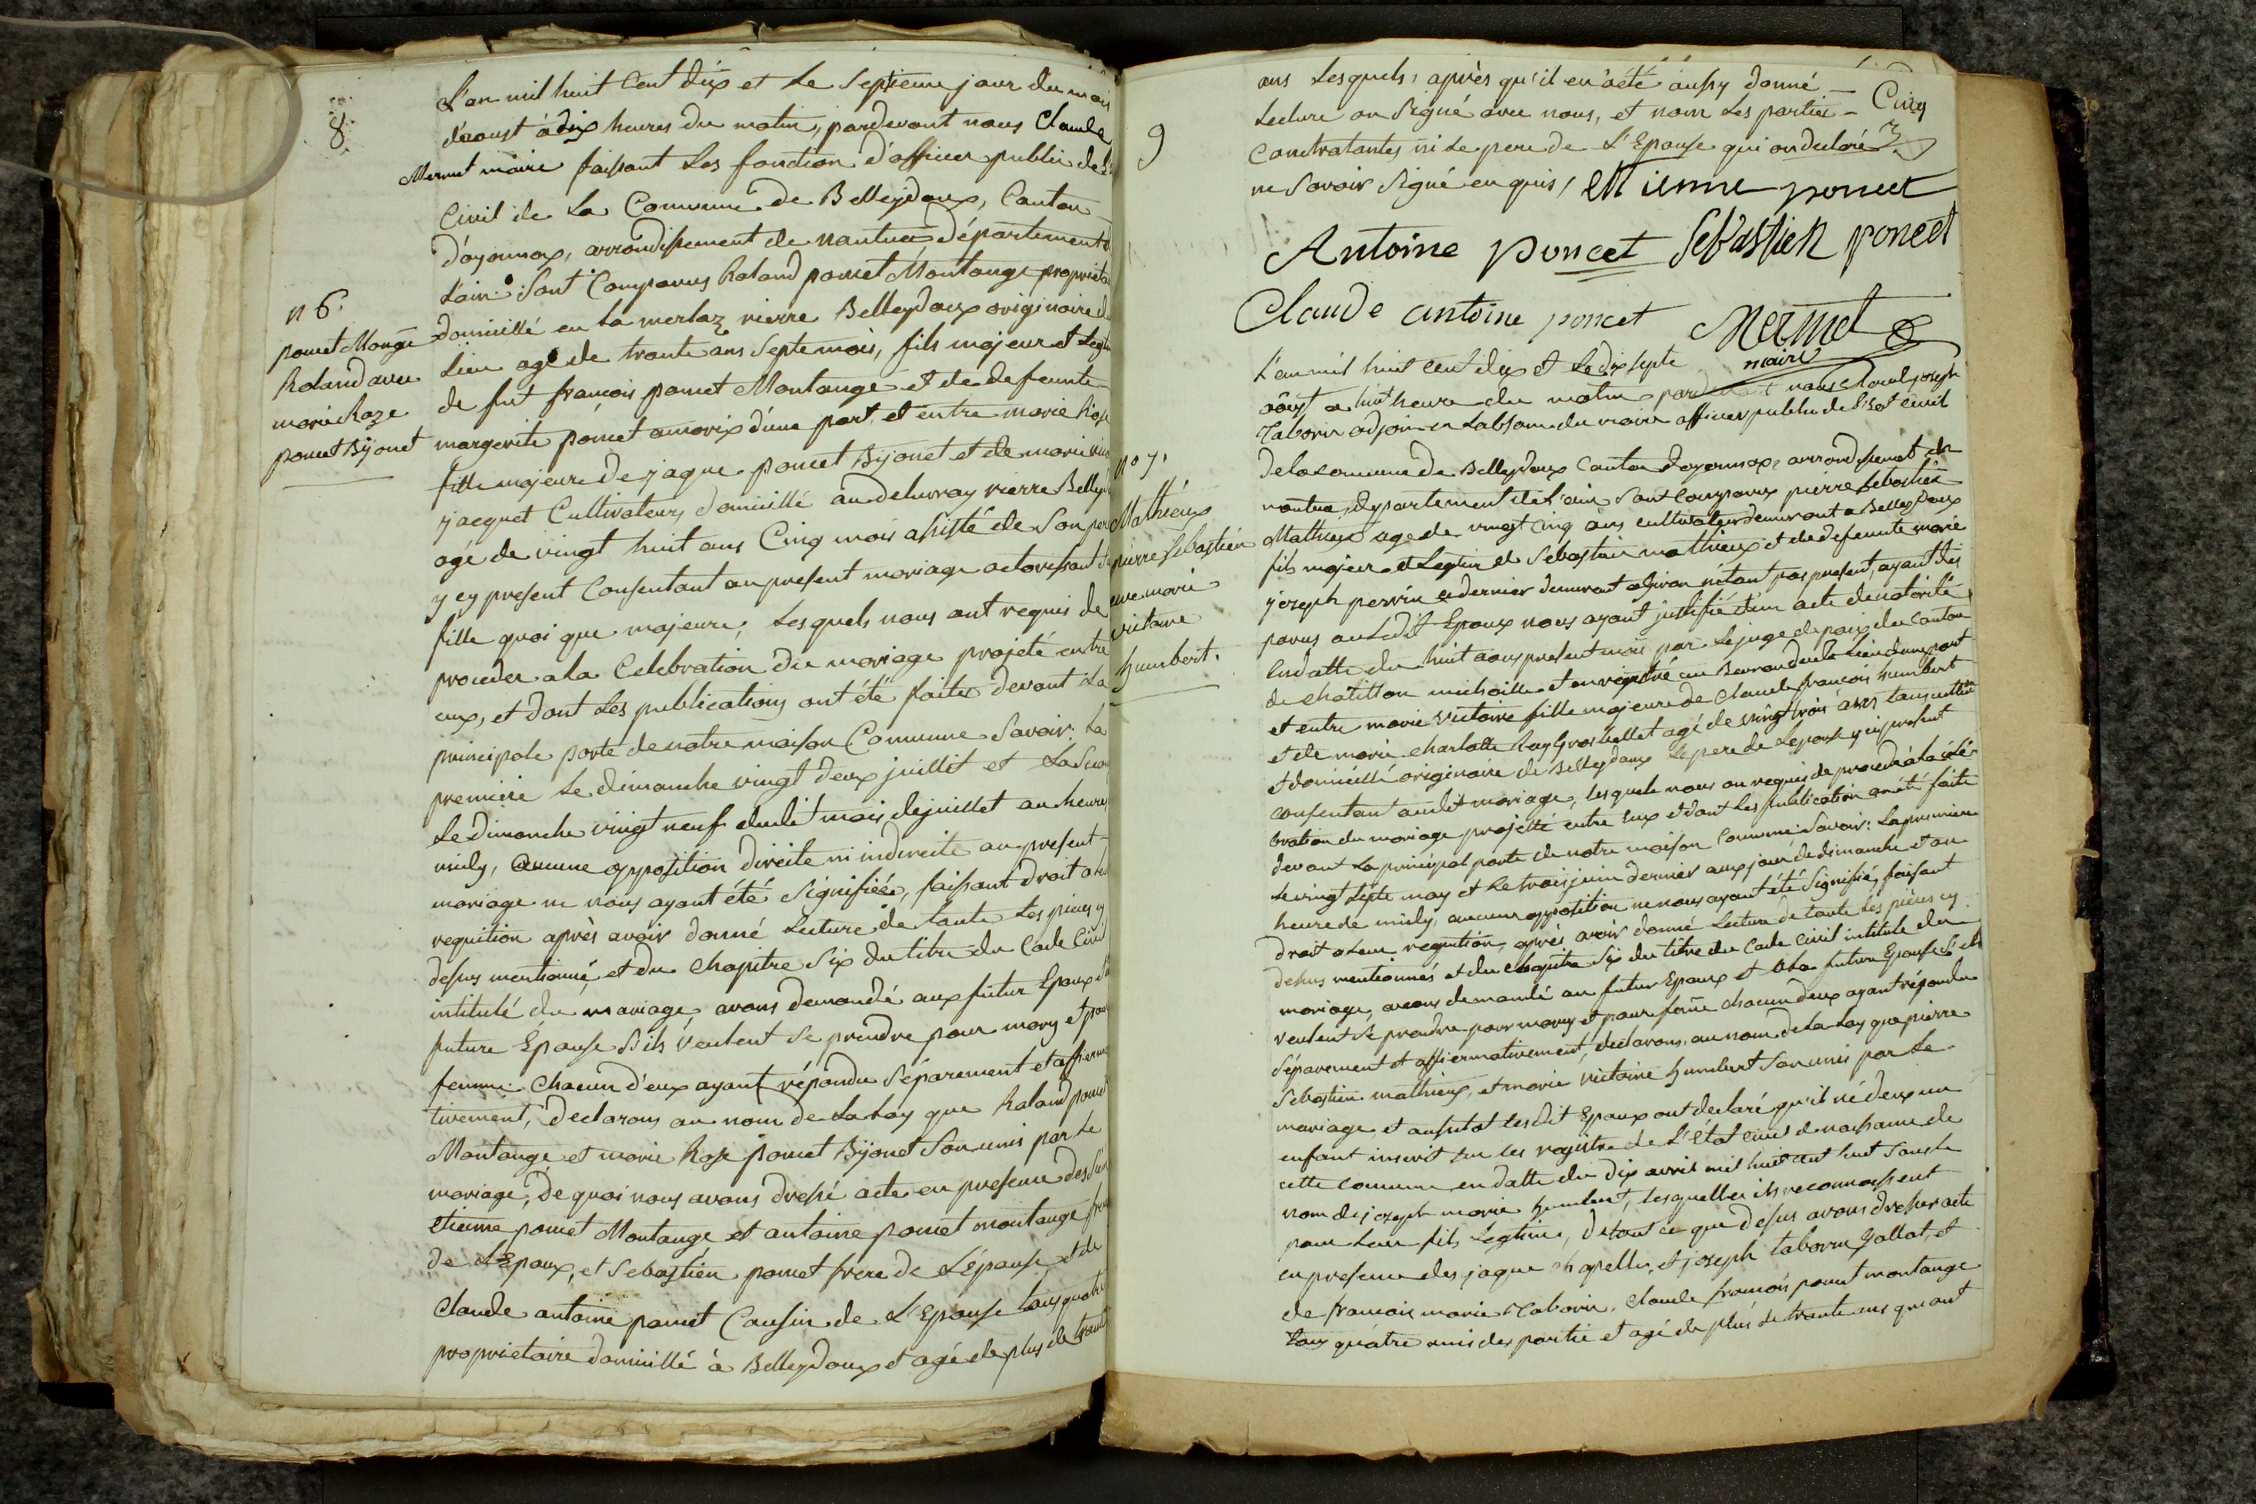 8
L'an mil huit Cent dix et Le Septieme jour du mois
d'aoust à dix heures du matin, pardevant nous Claude
Mermet maire faisant Les fonction d'officier public de
Civil de La Commune de Belleydoux, Canton
d'oyonnax, arrondissement de nantua département
L'ain. Sont Comparus Roland poncet Montange proprieta
domicillé en La merlaz rierre Belleydoux originaire d
Lieu agé de trante ans Septe mois, fils majeur et Leg
de fut françois poncet Montange et de defeunte
margerite poncet amorix d'une part, et entre marie Rose
fille majeure de jaque poncet Bijonet et de marie
jacquet Cultivateurs domicillé au delavray rierre Belleyd
agé de vingt huit ans Cinq mois assisté de Son per
y cy present Consentant au present mariage actorissant
fille quoi que majeure, Lesquels nous ont requis de
proceder a la Celebration du mariage projeté entre
eux, et dont Les publications ont été faite devant La
principale porte de notre maison Commune Savoir: La
premiere Le dimanche vingt deux juillet et La Seco
Le dimanche vingt neuf dudit mois de juillet au heures
midy, aucune opposition direite ni indireite au present
mariage ne nous ayant été Signifiée, faissant droit a
requition après avoir donné Lecture de tante Les pieces y
desus mentionné et du Chapitre Six du titre du Code Civil
intitulé du mariage, avons demandé aux futur Epoux
future Epouse S'ils veulent Se prendre pour mary et pour
femme. Chacun d'eux ayant répondu Séparement et affirma
tivement, declarons au nom de La Loy que Roland poncet
Montange et marie Rose poncet Bijonet Son unis par Le
mariage, De quoi nous avons dressé acte en presence des
etienne poncet Montange et antoine poncet montange frere
de L'Epoux, et Sebastien poncet frere de L'épouse et de
Claude antoine poncet Cousin de L'Epouse tous quatre
proprietaire domicillé à Belleydoux et agé de plus de trante
n 6.
poncet Monge
Roland avec
marie Roze
poncet Bijonet
9
ans Lesquels, après qu'il en a été aussy donné
Lecture on Signé avec nous, et nom Les partie
Contratantes ni Le pere de L'Epouse qui on declaré
ne Savoir Signé enquis, Cinq
Ettienne poncet
Antoine poncet Sebastien poncet
Claude antoine poncet Mermet
maire
n° 7.
Mathieux
pierre Sebastien
avec marie
victoire
humbert.
L'an mil huit cent dix et Le dix septe
aoust a huit heure du matin pardevant nous Claude joseph
Taborin adjoin en L'absance du maire officier public de L'Etat civil
de la commune de Belleydoux canton doyonnax, arrondissement de
nantua, departement de L'ain Sont comparus pierre Sebastien
Mathieux age de vingt cinq ans cultivateur demeurant a Belleydoux
fils majeur et Legtim de Sebastien mathieux et de defeunte marie
joseph perrin ce dernier demeurant a giron n'etant pas present, ayant
parus au Ledit Epoux nous ayant justifié d'un acte de notoriété
en datte du huit aous present mois par Le juge de paix du canton
de chatillon michaille et enregistré au Lieu d'une part
et entre marie victoire fille majeure de claude françois humbert
et de marie charlotte Ray Grosvellet agé de vingt trois ans tous
et domicillé originaire de Belleydoux Le pere de L'epouse y cy present
consentant audit mariage, lesquels nous on requis de procedé à La célé
bration du mariage projetté entre eux et dont Les publication on été faite
devant La principal porte de notre maison Commune Savoir: La premiere
Le vingt Septe may et Le trois juin dernier aux jour de dimanche et au
heure de midy, aucune opposition ne nous ayant été Signifié, faisant
droit a leur requition, après avoir donné Lecture de toute Les pièces cy
desus mentionnés et du chapitre Six du titre du Code Civil intitulé du
mariage, avons demandé au futur Epoux et a La future Epouse S'ils
veulent Se prendre pour mary et pour fême chacun d'eux ayant répondu
Séparement et affirmativement, declarons au nom de La Loy que pierre
Sebastien mathieux, et marie victoire humbert Son unis par Le
mariage et aussitot les dit Epoux ont declaré qu'il né d'eux un
enfant inscrit sur les registre de L'état civil de naissance de
cette commune en datte du dix avril mil huit cent huit Sous Le
nom de joseph marie humbert, lesquelles ils reconnoissent
pour Leur fils Légtime, de tout ce que desus avons dresser acte
en presence des jaque chapelles, et joseph taborin Gallat, et
de francois marie Taborin, claude françois poncet montange
tous quatre amis des partie et agé de plus de trante ans qui ont